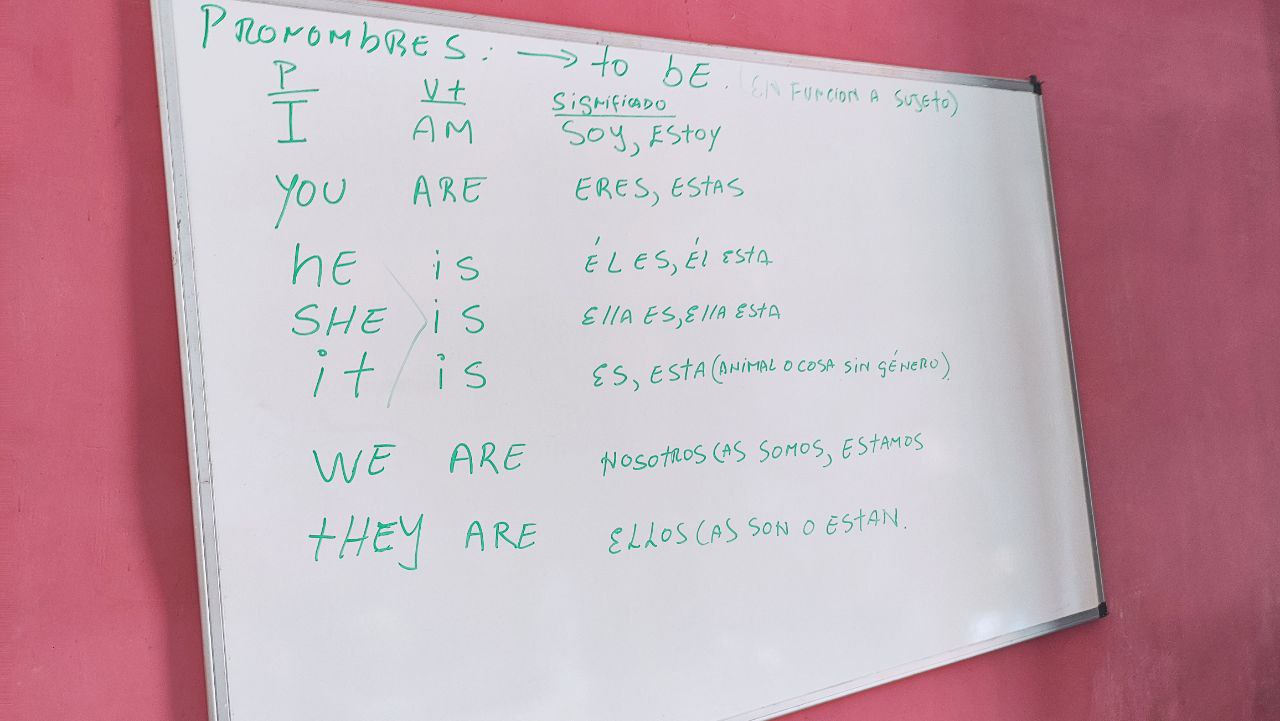 PRONOMbRES: → to bE. (EN FUNCION A SUJETO)
P Vt SIGNIFICADO
I AM SOY, EStOY
YOU ARE ERES, EStAS
hE is ÉL ES, Él EStA
SHE is EllA ES, EllA EStA
it is ES, EStA (ANiMAL O COSA SiN GÉNERO)
WE ARE NOSOtROS(AS SOMOS, EStAMOS
tHEY ARE ELLOS(AS SON O EStAN.